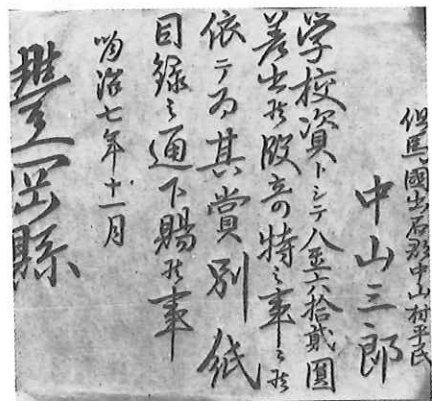 但馬國出石郡中山村平民
中山三郎
学校資トシテ金六拾貳圓
差出候段奇特之事ニ候
依テ為其賞別紙
目録之通下賜候事
明治七年十一月
豊岡縣